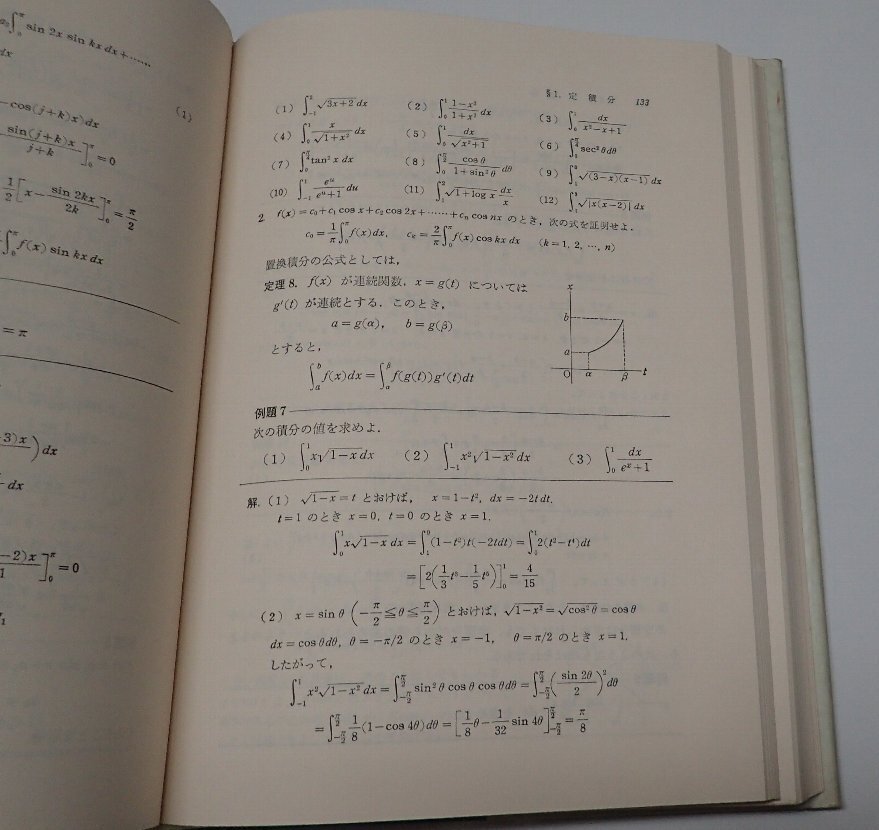 a₀∫₀^π sin 2x sin kx dx+……
dx
−cos(j+k)x)dx (1)
sin(j+k)x/j+k ]₀^π=0
1/2[x−sin 2kx/2k]₀^π=π/2
∫₀^π f(x) sin kx dx
=π
−3)x)dx
dx
−2)x/1 ]₀^π=0
§1. 定 積 分 133
(1) ∫₋₁² √(3x+2) dx (2) ∫₀¹ (1−x²)/(1+x²) dx (3) ∫₀¹ dx/(x²−x+1)
(4) ∫₀¹ x/√(1+x²) dx (5) ∫₀¹ dx/√(x²+1) (6) sec²θdθ
(7) tan²x dx (8) ∫₀^(π/2) cosθ/(1+sin²θ) dθ (9) √((3−x)(x−1)) dx
(10) ∫₋₁¹ eᵘ/(eᵘ+1) du (11) ∫₁² √(1+log x) dx/x (12) √|x(x−2)| dx
2 f(x)=c₀+c₁ cos x+c₂ cos 2x+……+cₙ cos nx のとき，次の式を証明せよ．
c₀=1/π ∫₀^π f(x)dx, cₖ=2/π ∫₀^π f(x) cos kx dx (k=1, 2, …, n)
置換積分の公式としては，
定理 8. f(x) が連続関数，x=g(t) については
g′(t) が連続とする．このとき，
a=g(α), b=g(β)
とすると，
∫ₐᵇ f(x)dx=∫_α^β f(g(t))g′(t)dt
x
b
a
O α β t
例題 7
次の積分の値を求めよ．
(1) ∫₀¹ x√(1−x) dx (2) ∫₋₁¹ x²√(1−x²) dx (3) ∫₀¹ dx/(eˣ+1)
解. (1) √(1−x)=t とおけば， x=1−t², dx=−2t dt.
t=1 のとき x=0, t=0 のとき x=1.
∫₀¹ x√(1−x) dx=∫₁⁰(1−t²)t(−2tdt)=∫2(t²−t⁴)dt
=[2(1/3 t³−1/5 t⁵)]₀¹=4/15
(2) x=sin θ (−π/2≦θ≦π/2) とおけば，√(1−x²)=√(cos²θ)=cos θ
dx=cos θdθ, θ=−π/2 のとき x=−1, θ=π/2 のとき x=1.
したがって，
∫₋₁¹ x²√(1−x²) dx=∫_(−π/2)^(π/2) sin²θ cos θ cos θdθ=∫_(−π/2)^(π/2) (sin 2θ/2)²dθ
=∫_(−π/2)^(π/2) 1/8(1−cos 4θ)dθ=[1/8 θ−1/32 sin 4θ]_(−π/2)^(π/2)=π/8